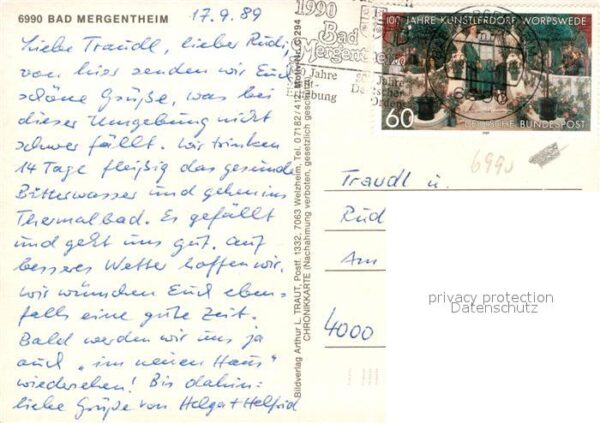 6990 BAD MERGENTHEIM
17.9.89
Liebe Traudl, lieber Rudi,
von hier senden wir Euch
schöne Grüße, was bei
dieser Umgebung nicht
schwer fällt. Wir trinken
14 Tage fleißig das gesunde
Bitterwasser und gehen ins
Thermalbad. Es gefällt
und geht uns gut. Auf
besseres Wetter hoffen wir.
Wir wünschen Euch eben-
falls eine gute Zeit.
Bald werden wir uns ja
auch "im neuen Haus"
wiedersehen! Bis dahin:
liebe Grüße von Helga + Helfried
Bildverlag Arthur L. TRAUT, Postf. 1332, 7063 Welzheim, Tel. 07182/
CHRONIKKARTE (Nachahmung verboten, gesetzlich geschützt)
1990
Bad
Mergentheim
Jahre
Deutscher
Orden
100 JAHRE KÜNSTLERDORF WORPSWEDE
60
DEUTSCHE BUNDESPOST
6990
Traudl u.
Rud
Am
4000
privacy protection
Datenschutz